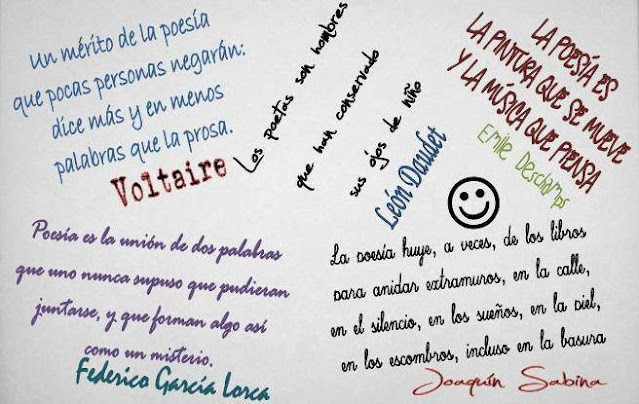 Un mérito de la poesía
que pocas personas negarán:
dice más y en menos
palabras que la prosa.
Voltaire
Los poetas son hombres
que han conservado
sus ojos de niño
León Daudet
LA POESÍA ES
LA PINTURA QUE SE MUEVE
Y LA MÚSICA QUE PIENSA
Emile Deschamps
Poesía es la unión de dos palabras
que uno nunca supuso que pudieran
juntarse, y que forman algo así
como un misterio.
Federico García Lorca
La poesía huye, a veces, de los libros
para anidar extramuros, en la calle,
en el silencio, en los sueños, en la piel,
en los escombros, incluso en la basura
Joaquín Sabina